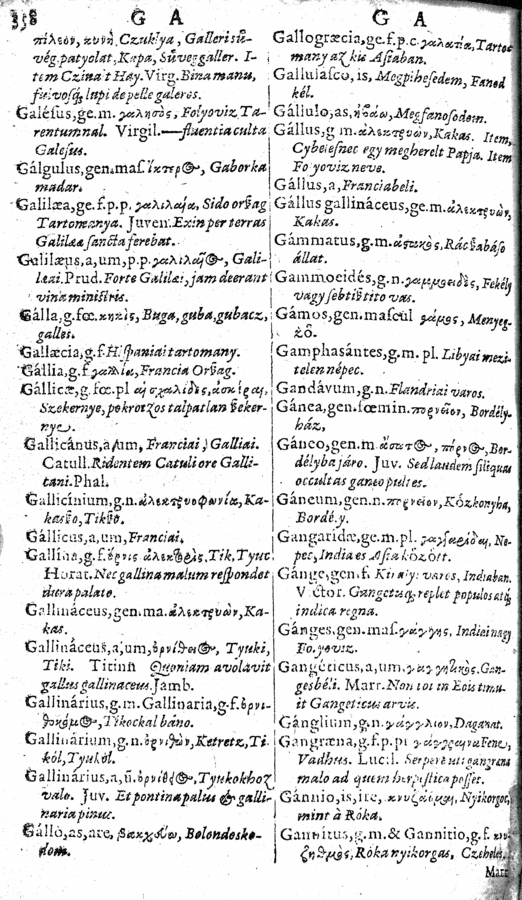 358
G A
πίλεον, κυνῆ, Czuklya, Galleri sü-
vég, patyolat, Kapa, Süveg galler. I-
tem Czinalt Hay. Virg. Bina manu,
lupi de pelle galeros.
Galésus, ge.m. γαλησὸς, Folyoviz Ta-
rentumnal. Virgil.—fluentia culta
Galesus.
Gálgulus, gen. mas. Gaborka
madar.
Galilæa, ge.f.p.p. γαλιλαία, Sido orszag
Tartomanya. Juven. Exin per terras
Galilææ sancta ferebat.
Galilæus, a, um, p.p. Gali-
læai. Prud. Forte Galilæi, jam deerant
vina ministris.
Gálla, g.fœ. κηκὶς, Buga, guba, gubacz,
galles.
Gallæcia, g.f. Hispaniai tartomany.
Gállia, g.f. Francia Orszag.
Gállicæ, g.fœ.pl.
Szekernye, pokrotzos talpatlan szeker-
nye.
Gallicánus, a, um, Franciai, Galliai.
Catull. Ridentem Catuli ore Galli-
cani. Phal.
Gallicínium, g.n. ἀλεκτρυοφωνία, Ka-
kasszo, Tikszo.
Gállicus, a, um, Franciai.
Gallína, g.f. ὄρνις Tik, Tyuc
Horat. Nec gallina malum respondet
dura palato.
Gallináceus, gen.ma. ἀλεκτρυὼν, Ka-
kas.
Gallináceus, a, um, Tyuki,
Tiki. Titinn. Quoniam avolavit
gallus gallinaceus. Jamb.
Gallinárius, g.m. Gallinaria, g.f.
Tikockal báno.
Gallinárium, g.n. ὀρνιθὼν, Ketretz, Ti-
kól, Tyukól.
Gallinárius, a, ũ. Tyukokhoz
valo. Juv. Et pontina palus & galli-
naria pinus.
Gállo, as, are, Bolondosko-
dom.
G A
Gallogræcia, ge.f.p.c. γαλατία, Tartot
many az kis Asiaban.
Gallulásco, is, Megpihesedem, Fanod
kél.
Gállulo, as, ἡβάω, Megfanosodom.
Gállus, g.m. ἀλεκτρυών, Kakas. Item,
Cybelesnec egy megherelt Papja. Item
Foyoviz neve.
Gállus, a, Franciabeli.
Gállus gallináceus, ge.m. ἀλεκτρυὼν,
Kakas.
Gámmatus, g.m. Racszabáso
állat.
Gammoeidés, g.n. γαμμοειδὲς, Fekély
vagy seb tisztito vas.
Gámos, gen. mascul. γάμος, Menyeg-
zö.
Gamphasántes, g.m. pl. Libyai mezi-
telen népec.
Gandávum, g.n. Flandriai varos.
Gánea, gen. fœmin. πορνεῖον, Bordély-
ház,
Gáneo, gen.m. Bor-
délyba járo. Juv. Sed laudem siliquas
occultus ganeo pultes.
Gáneum, gen.n. πορνεῖον, Kózkonyha,
Bordély.
Gangaridæ, ge.m.pl. Ne-
pec, India es Asia között.
Gánge, gen.f. Kiraly varos, Indiaban.
Victor. replet populos atq;
indica regna.
Gánges, gen.mas. γάγγης, Indiai nagy
Foyoviz.
Gangéticus, a, um, γαγγητικὸς, Gan-
gesbéli. Mart. Non tot in Eois timu-
it Gangeticus arvis.
Gánglium, g.n. γάγγλιον, Daganat.
Gangræna, g.f.p.p. γάγγραινα Fene,
Vadhus. Lucil. Serpere uti gangræna
malo ad quem herpestica posset.
Gánnio, is, ire, Nyikorgot,
mint à Róka.
Gannitus, g.m. & Gannitio, g.f.
Róka nyikorgas, Czeheles,
Mart